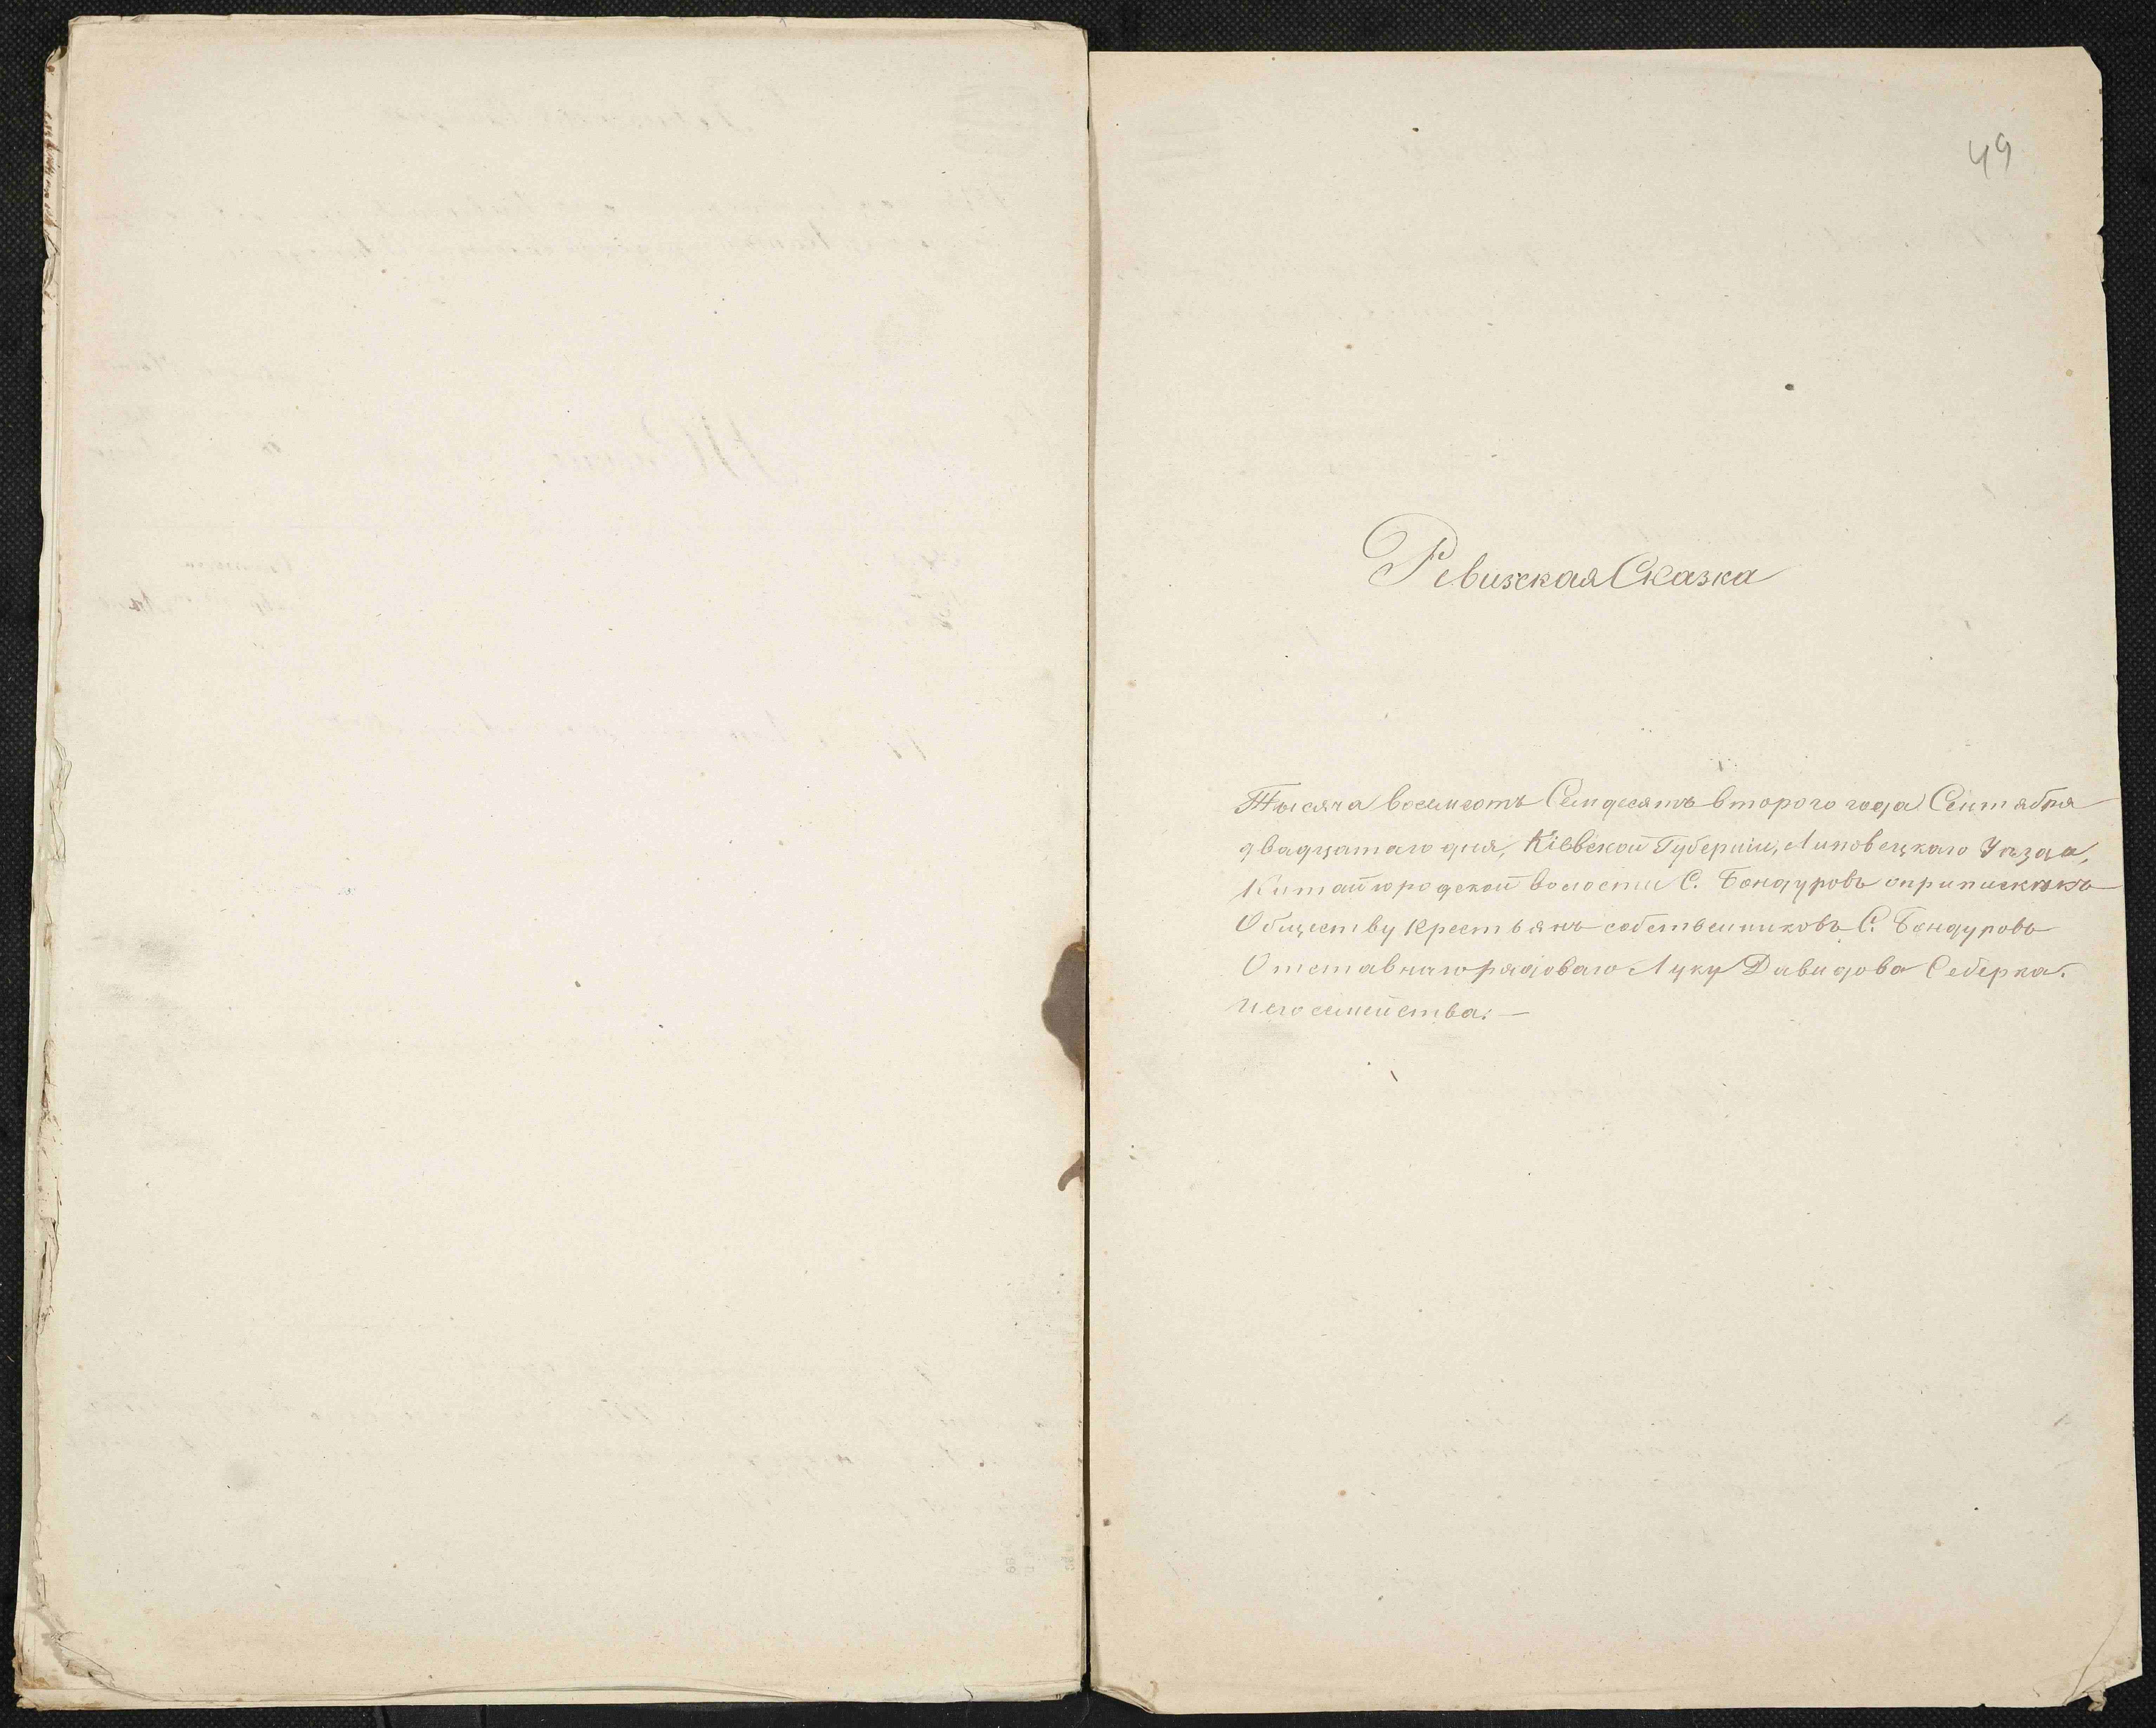 49
Ревизская Сказка
Тысяча восемсотъ Семдесятъ второго года Сентября
двадцатаго дня, Кіевской Губерніи, Липовецкаго Уѣзда,
Китайгородской волости С. Бондуровъ оприпискѣ къ
Обществу крестьянъ собственниковъ С. Бондуровъ
Отставнаго рядоваго Луку Давидова Себерка.
и его семейства. —